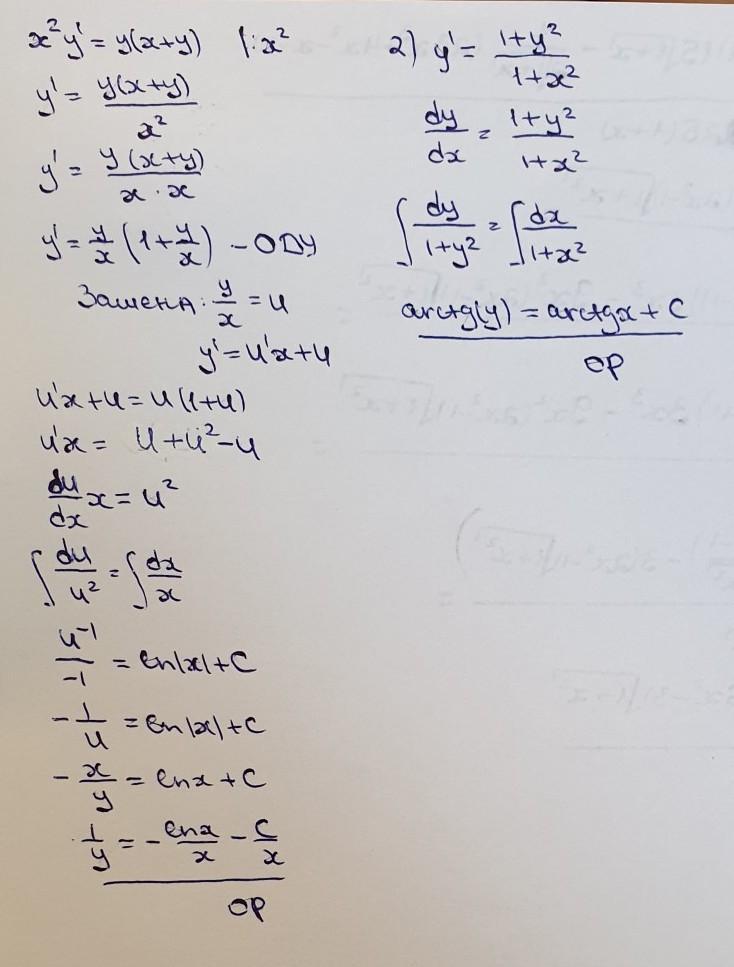 x²y' = y(x+y) |:x²
y' = y(x+y)/x²
y' = y(x+y)/(x·x)
y' = y/x (1+y/x) – ОДУ
Замена: y/x = u
y' = u'x+u
u'x+u = u(1+u)
u'x = u+u²-u
du/dx x = u²
∫ du/u² = ∫ dx/x
u⁻¹/-1 = ln|x|+C
-1/u = ln|x|+C
-x/y = lnx+C
1/y = -lnx/x - C/x
ОР
2) y' = (1+y²)/(1+x²)
dy/dx = (1+y²)/(1+x²)
∫ dy/(1+y²) = ∫ dx/(1+x²)
arctg(y) = arctgx + C
ОР